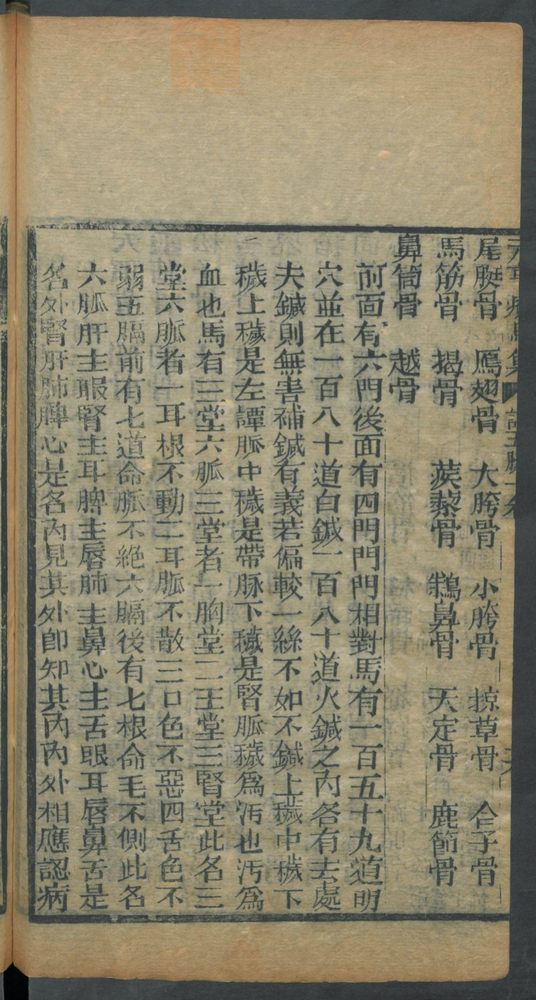 元亨療馬集
尾骽骨 鴈翅骨 大胯骨 小胯骨 掠草骨 合子骨
馬筋骨 揭骨 蒺藜骨 鵝鼻骨 天定骨 鹿節骨
鼻筒骨 越骨
前面有六門後面有四門門門相對馬有一百五十九道明
穴並在一百八十道白鍼一百八十道火鍼之內各有去處
夫鍼則無害補鍼有義若偏較一絲不如不鍼上穢中穢下
穢上穢是左譚脈中穢是帶脈下穢是腎脈穢爲汚也汚爲
血也馬有三堂六脈三堂者一胸堂二玉堂三腎堂此名三
堂六脈者一耳根不動二耳脈不散三口色不惡四舌色不
弱五膈前有七道命脈不絶六膈後有七根命毛不側此名
六脈肝主眼腎主耳脾主唇肺主鼻心主舌眼耳唇鼻舌是
名外腎肝肺脾心是名內見其外卽知其內內外相應認病